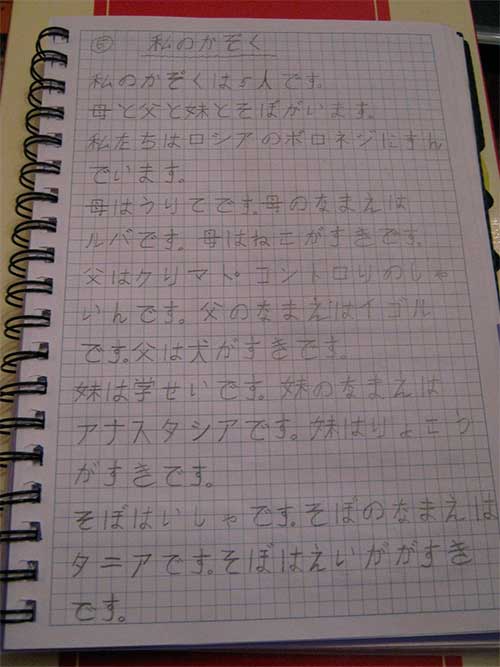 ⑥ 私のかぞく
私のかぞくは5人です。
母と父と妹とそぼがいます。
私たちはロシアのボロネジにすん
でいます。
母はうりてです。母のなまえは
ルバです。母はねこがすきです。
父はクリマト・コントロリのしゃ
いんです。父のなまえはイゴル
です。父は犬がすきです。
妹は学せいです。妹のなまえは
アナスタシアです。妹はりょこう
がすきです。
そぼはいしゃです。そぼのなまえは
タニアです。そぼはえいががすき
です。